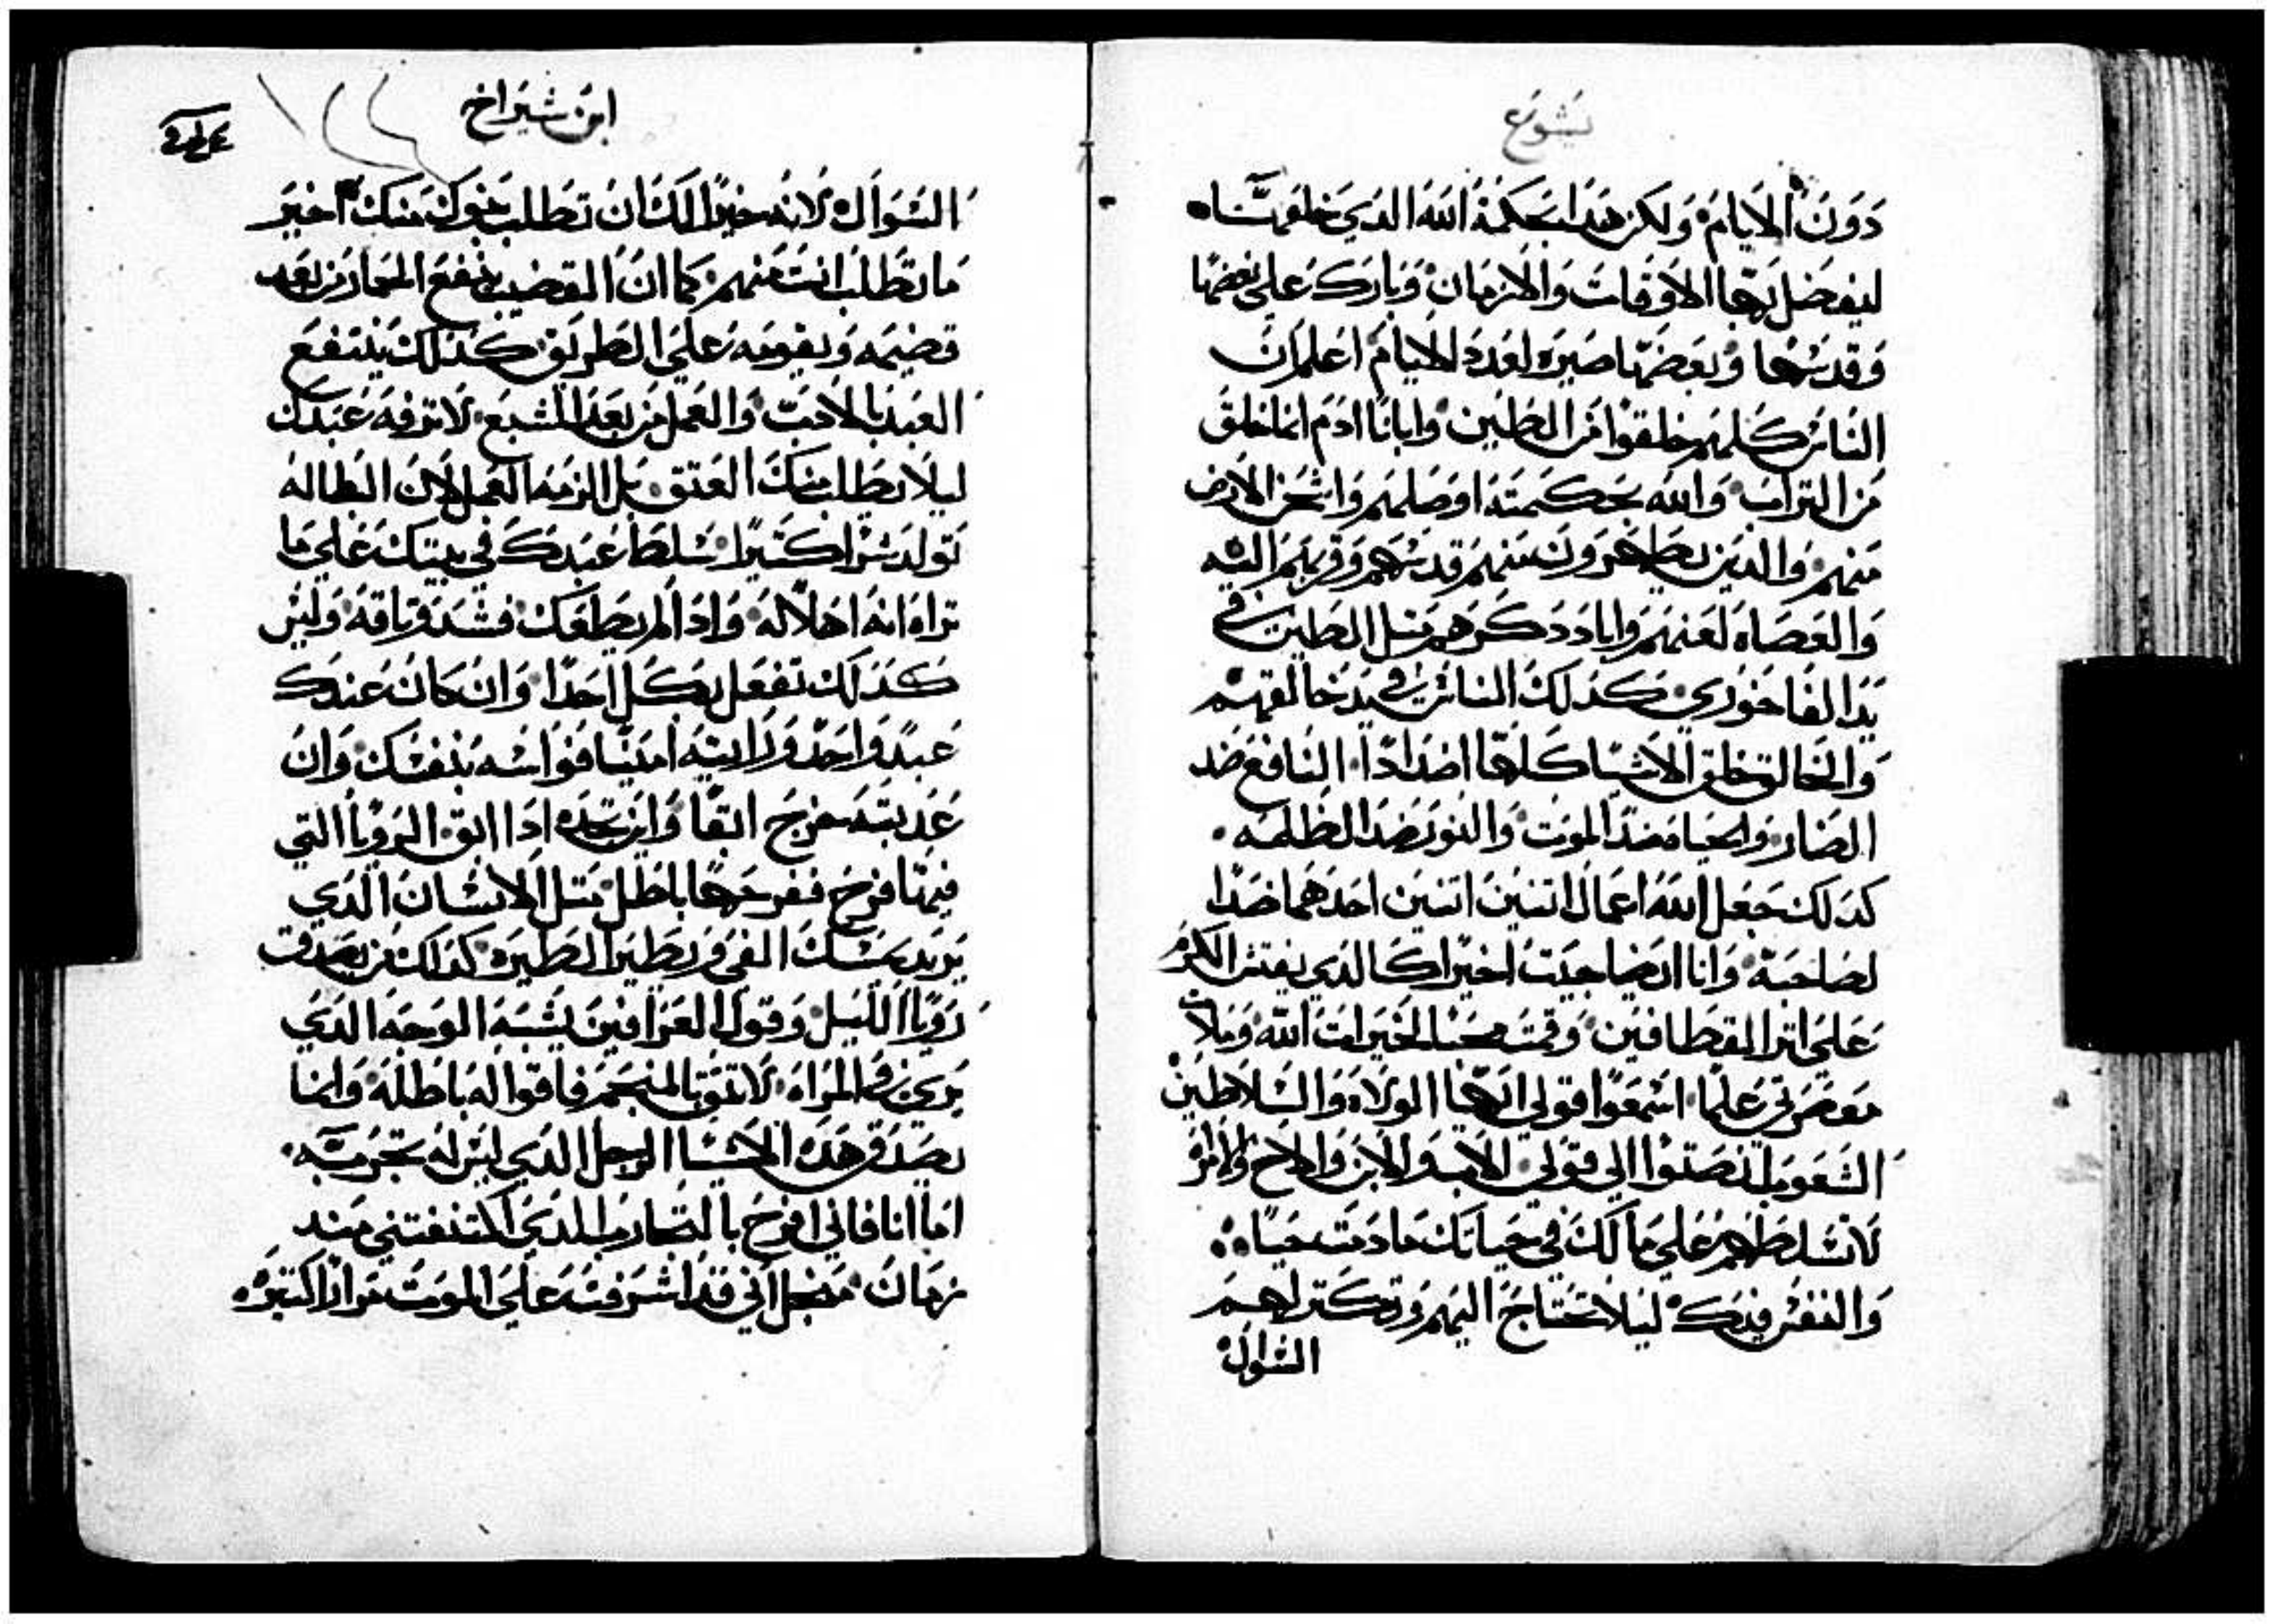 يشوع
دون الايام ولكن هدا بحكمة الله الدي خلقتاه
ليفضل بها الاوقات والازمان وبارك على بعضها
وقدسها وبعضها صيره لعدد الايام اعلم ان
الناس كلهم خلقوا من الطين وابانا ادم انما خلق
من التراب والله بحكمته اوصلهم واشحن الارض
منهم والدين يطاهرون منهم قدسهم وقربهم اليه
والعصاه لعنهم وابادد كرهم متل الطين في
يدا الفاخوري كدلك الناس في يد خالقهم
والخالق خلق الاشيا كلها اضدادا النافع ضد
الضار والحياه ضد الموت والنور ضد الظلمه
كدلك جعل الله اعمال اتنين اتنين احدهما ضدا
لصاحبه وانا ايضا جيت اخيرا كالدي يفتش الكرم
على اتر القطافين وقمت بحب الخيرات الله وملات
معصرتي علما اسمعوا قولي ايها الولاه والسلاطين
الشعوب انصتوا الي قولي الاب والابن والاخ والامراه
لا تسلطهم علي ما لك في حياتك ما دمت حيا
والنفس فيك ليلا تحتاج اليهم وتكتر لهم
السوال
ابن شيراخ
السوال لانه خيرا لك ان تطلب بنوك منك اخير
ما تطلب انت منهم كما ان القضيب ينفع الحمار من بعد
قضيمه ويقومه على الطريق كدلك ينتفع
العبد بالادب والعمل من بعد الشبع لا ترفه عبدك
ليلا يطلب منك العتق بل الزمه العمل لان البطاله
تولد شرا كتيرا سلط عبدك في بيتك علي ما
تراه انه اهلا له وادا لم يطعك فشد وتاقه وليس
كدلك تفعل بكل احدا وان كان عندك
عبدا واحد ورايته امينا فواسه بنفسك وان
عدبته خرج ابقا واين تجده ادا ابق الرويا التي
فيها فرح ففرحها باطل متل الانسان الدي
يريد يمسك الفي ويطير الطيره كدلك من يصدق
رويا الليل وقول العرافين يشبه الوجه الدي
يري في المراه لا تتق بالمنجم فاقواله باطله وانما
يصدق هده الاشيا الرجل الدي ليس له تجربه
اما انا فاني افرح بالتجارب الدي اكتنفتني مند
زمان من اجل اني قد اشرفت على الموت مرارا كتيره